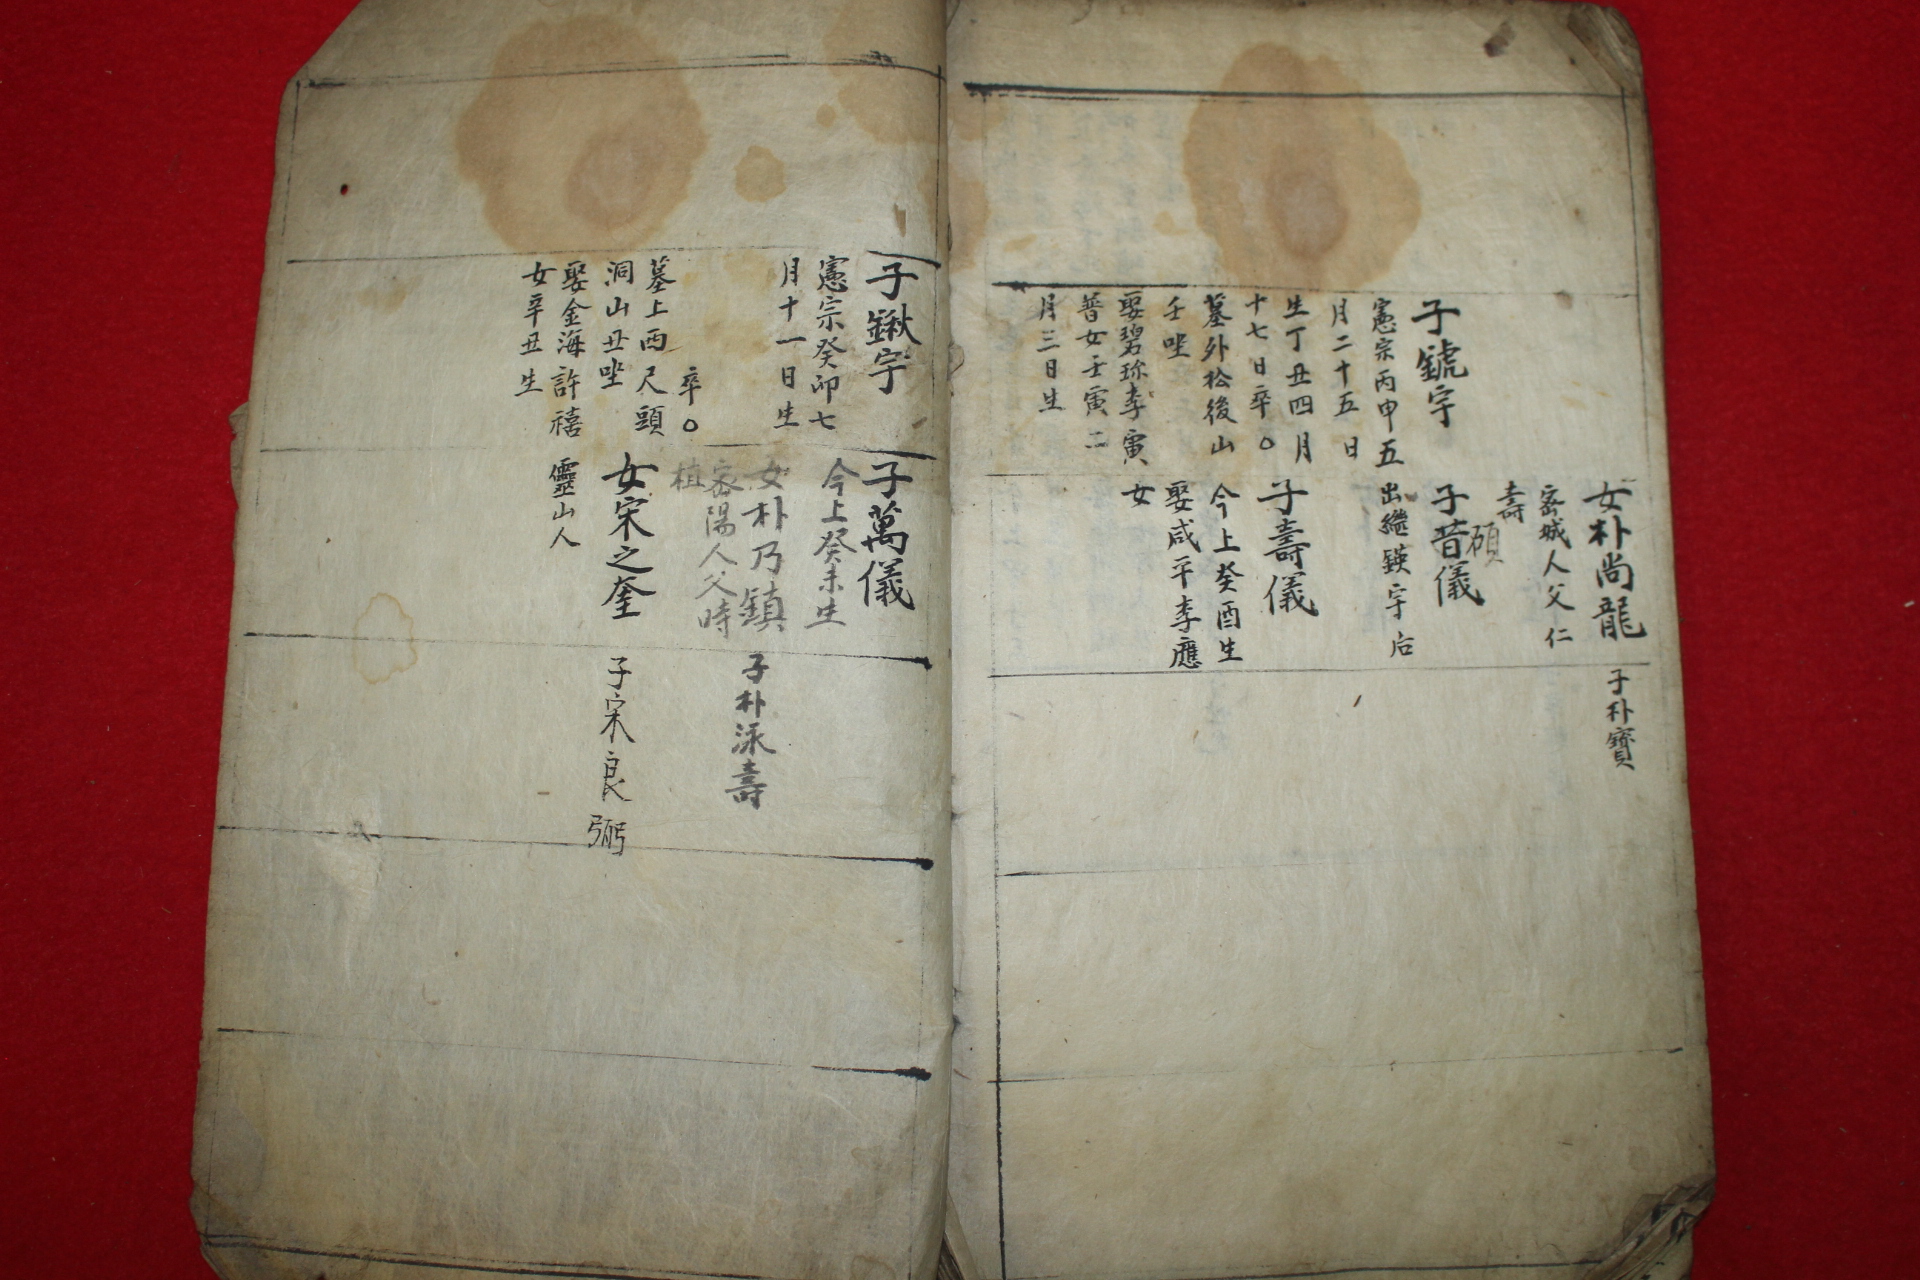 子錿宇
憲宗丙申五
月二十五日
生丁丑四月
十七日卒○
墓外松後山
壬坐
娶碧珍李寅
普女壬寅二
月三日生
女朴尚龍
密城人父仁
壽
碩
子昔儀
出繼鍈宇后
子壽儀
今上癸酉生
娶咸平李應
女
子朴寶
子鍬宇
憲宗癸卯七
月十一日生
卒○
墓上西尺頭
洞山丑坐
娶金海許禧
女辛丑生
子萬儀
今上癸未生
女朴乃鎮
密陽人父時
植
女宋之奎
靈山人
子朴泳壽
子宋良弼